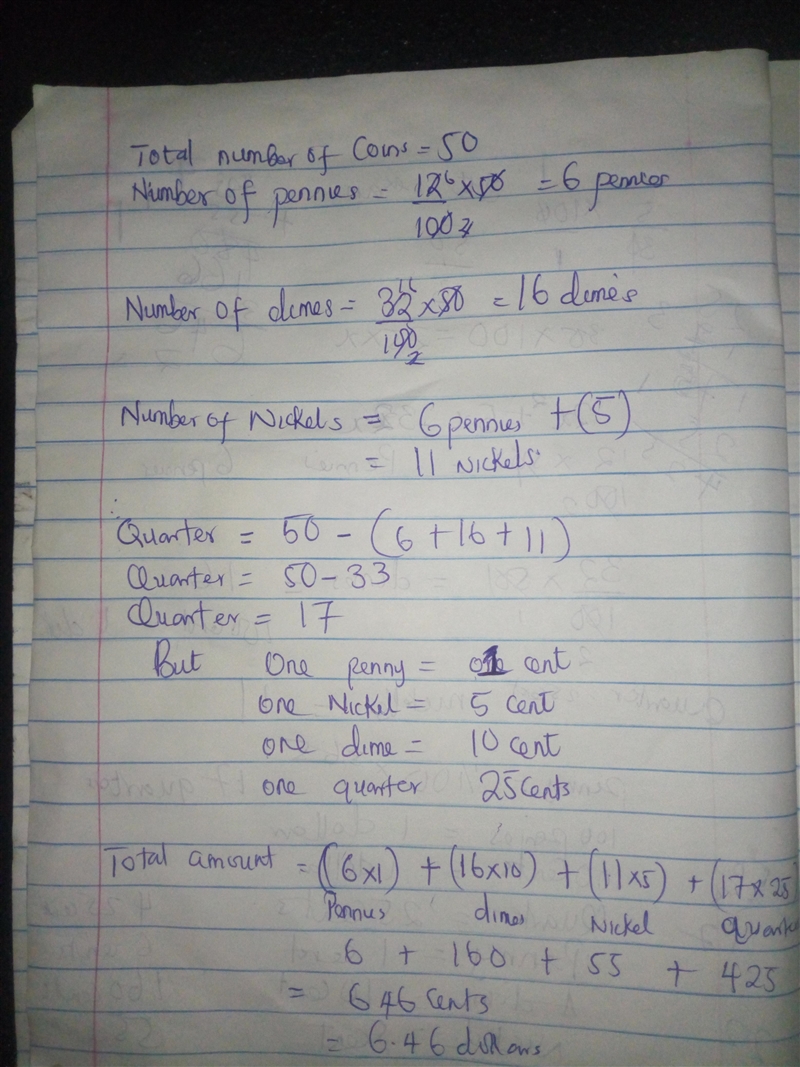 Total number of Coins = 50
Number of pennies = 12 6 × 50 = 6 pennies
100 2
Number of dimes = 32 16 × 50 = 16 dimes
100 2
Number of Nickels = 6 pennies + (5)
= 11 Nickels.
Quarter = 50 - (6 + 16 + 11)
Quarter = 50 - 33
Quarter = 17
But One penny = 01 cent
one Nickel = 5 cent
one dime = 10 cent
one quarter 25 cents
Total amount = (6×1) + (16×10) + (11×5) + (17×25
Pennies dimes Nickel Quarte
6 + 160 + 55 + 425
= 646 cents
= 6.46 dollars